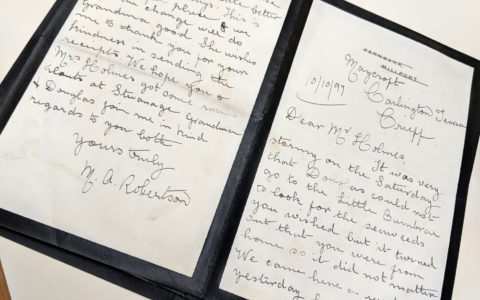 MILLPORT.
Maycroft
Terrace
Crieff.
10/10/99
Dear Mr Holmes,
It was very
stormy on the Saturday
that Douglas could not
go to the Little Cumbrae
to look for the seaweeds
you wished but it turned
out that you were from
home so it did not matter
We came here a
yesterday
little better
This is
place & we
change will do
Grandma good She wishes
me to thank you for your
kindness in sending the
receipt. We hope you &
Mrs Holmes got some rare
plants at Swanage Grandma
& Douglas join me in kind
regards to you both
Yours truly
M. A. Robertson